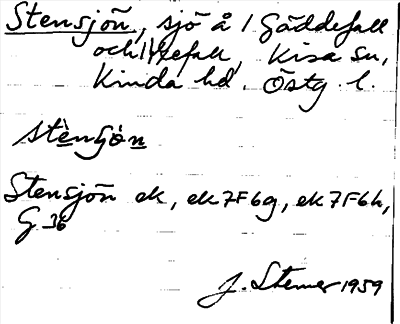 Stensjön, sjö å / Gäddefall
och Yttefall, Kisa sn,
Kinda hd. Östg. l.
stènśö̀n
Stensjön ek, ek 7F6g, ek 7F6h,
G 36
J. Stemer 1959